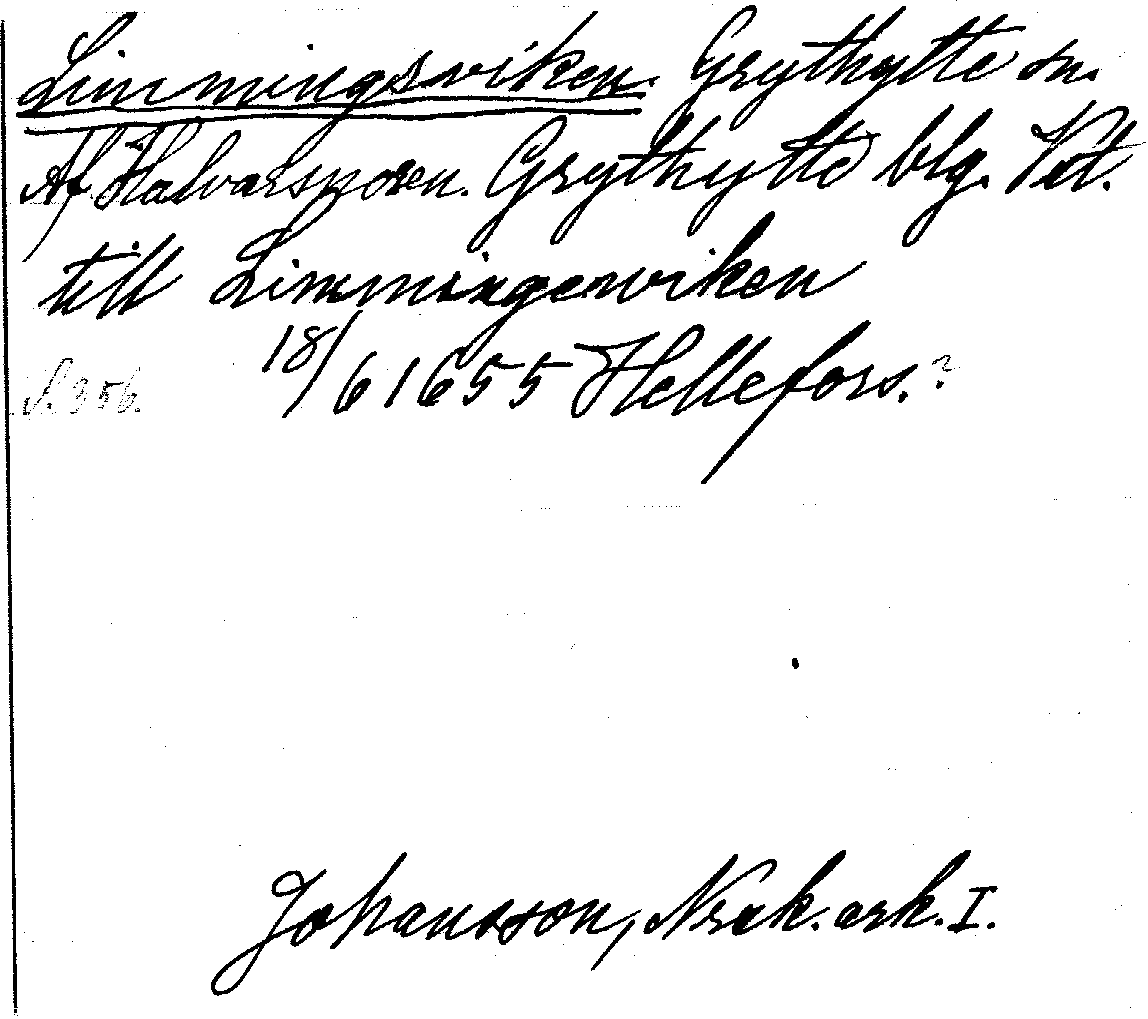 Limmingsviken. Grythytte sn.
Af Halvarsnoren. Grythytte blg. Vstl.
till Limmingenviken
18/6 1655 Hellefors.?
S. 356.
Johansson, Nrak. ark. I.